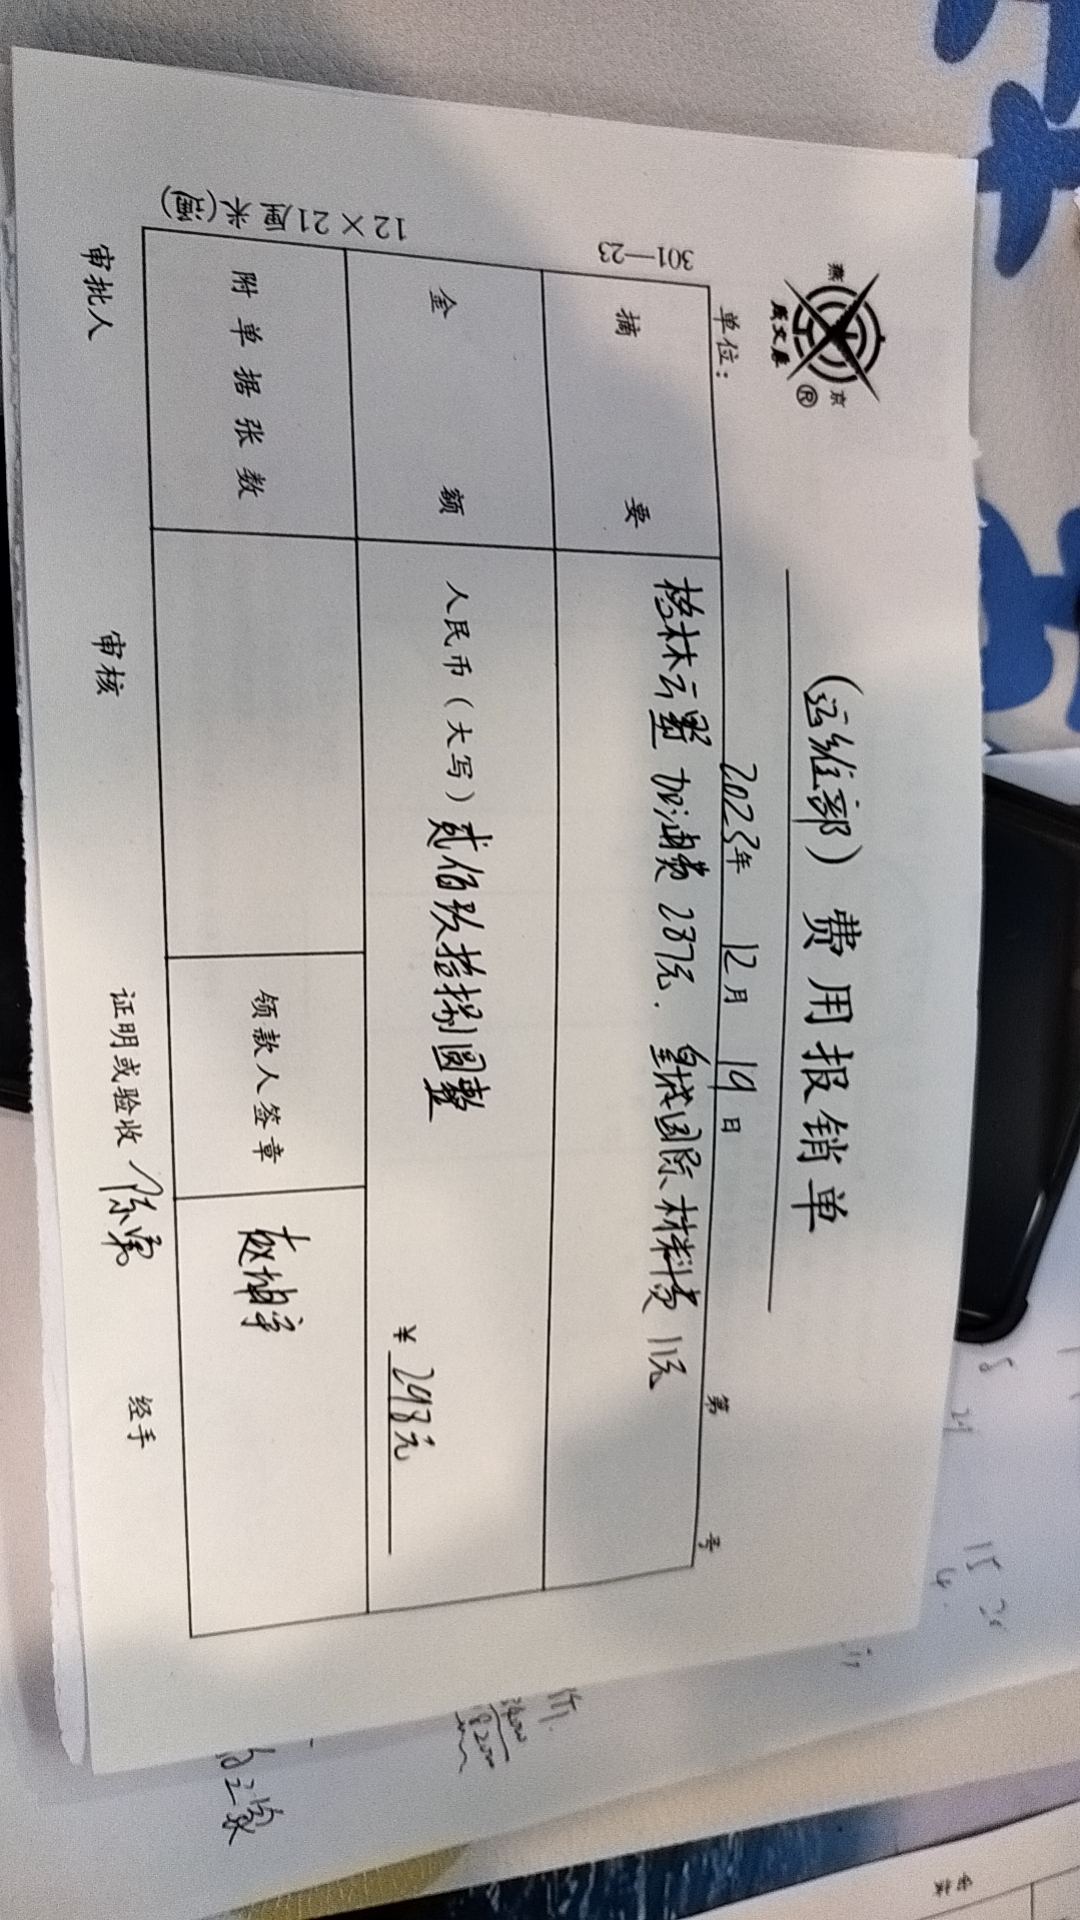 燕 京
（运维部）费用报销单
单位： 2023年 12月 19日 第 号
摘要 格林云墅 加油费 287元. 皇茂国际 材料费 11元
金额 人民币（大写）贰佰玖拾捌圆整
¥ 298元
附单据张数 领款人签章 赵坤宇
审批人 审核 证明或验收 陈 经手
301—23
12×21厘米(通)